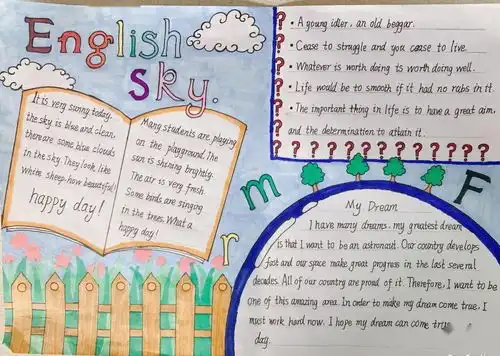 English
Sky.
It is very sunny today.
the sky is blue and clean,
there are some blue clouds
in the sky. They look like
white sheep. how beautiful!
happy day!
Many students are playing
on the playground. The
sun is shining brightly.
The air is very fresh.
Some birds are singing
in the trees. What a
happy day!
• A young idler, an old beggar.
• Cease to struggle and you cease to live.
• Whatever is worth doing is worth doing well.
• Life would be to smooth if it had no rabs in it.
• The important thing in life is to have a great aim,
and the determination to attain it.
m
F
r
My Dream
I have many dreams, my greatest dream
is that I want to be an astronaut. Our country develops
fast and our space make great progress in the last several
decades. All of our country are proud of it. Therefore, I want to be
one of this amazing area. In order to make my dream come true, I
must work hard now. I hope my dream can come true
day.